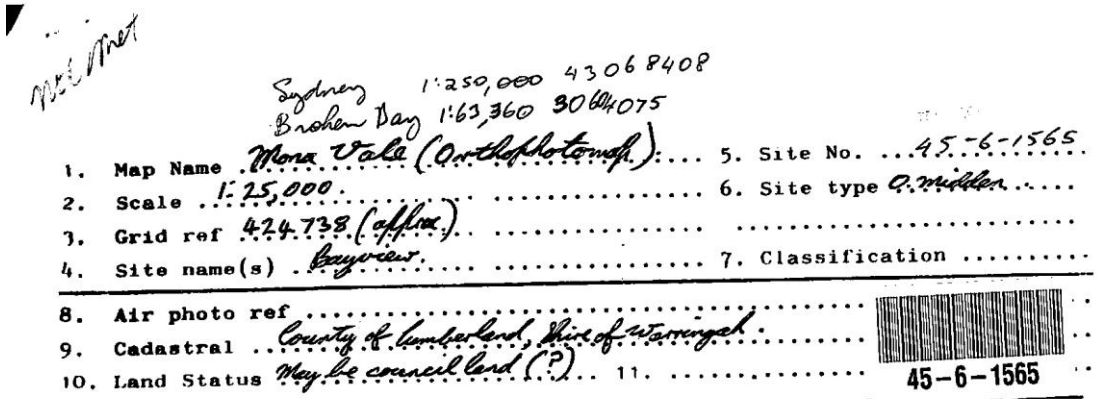 not met
Sydney 1:250,000 43068408
Broken Bay 1:63,360 30604075
1. Map Name .Mona Vale (Orthophotomap).... 5. Site No. ...45-6-1565
2. Scale ..1:25,000. ................... 6. Site type O.midden.....
3. Grid ref 424738 (approx).. ................
4. Site name(s) ..Bayview. ................ 7. Classification ..........
8. Air photo ref ................................
9. Cadastral ..County of Cumberland, Shire of Warringah.
10. Land Status May be council land (?).. 11. ................
45-6-1565